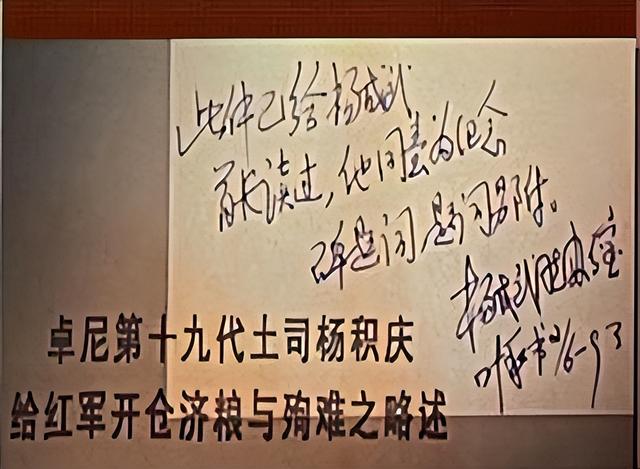 此件已给杨成武
首长读过,他同意为纪念
碑题词 题词另附。
杨成武
叶 书 21/6-93
卓尼第十九代土司杨积庆
给红军开仓济粮与殉难之略述